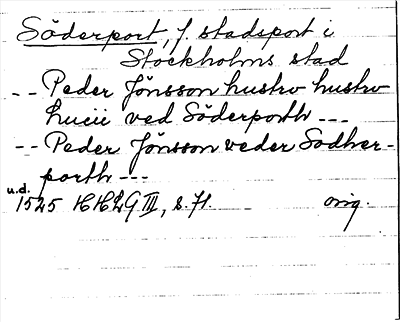 Söderport, f. stadsport i
Stockholms stad
-- Peder Jönsson hustrv hustrv
lucie ved Söderporth ---
-- Peder Jönsson veder Sodher-
porth ---
u.d.
1525 HH2G III, s. 71. orig.